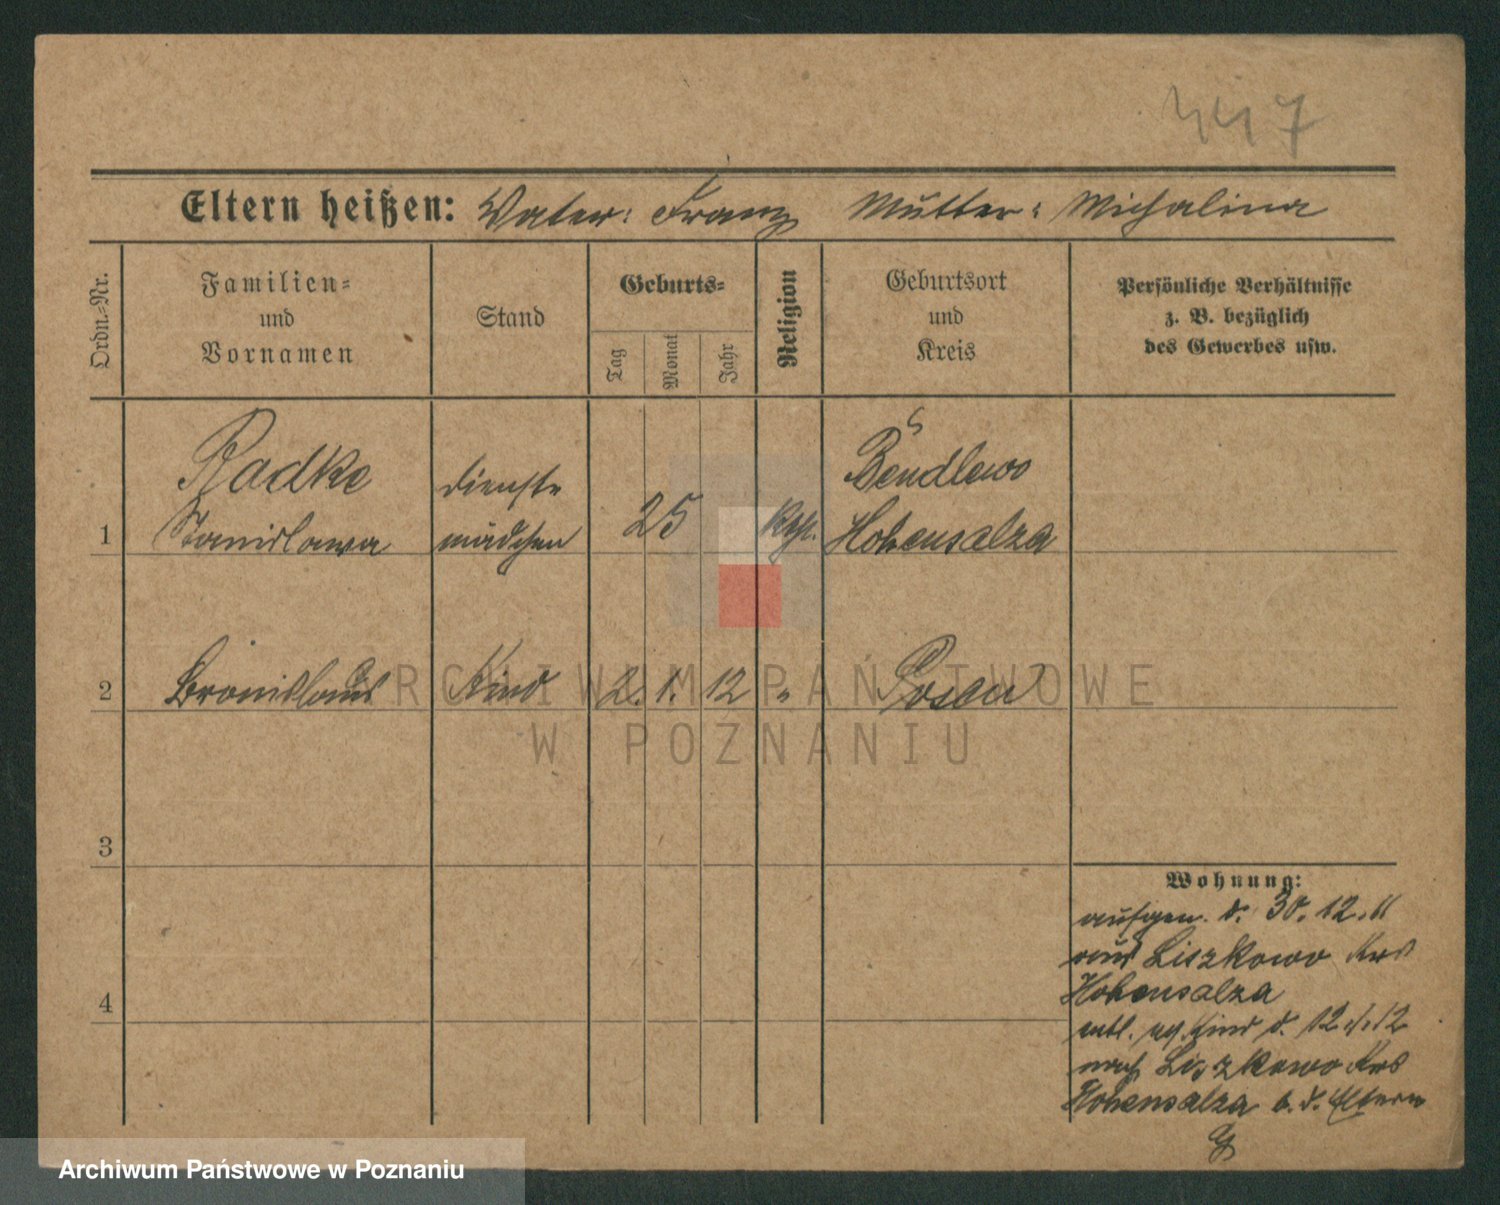 447
Eltern heißen: Vater: Franz Mutter: Michalina
Ordn.-Nr.
Familien-
und
Vornamen
Stand
Geburts-
Tag
Monat
Jahr
Religion
Geburtsort
und
Kreis
Persönliche Verhältnisse
z. B. bezüglich
des Gewerbes usw.
1
Radke
Stanislawa
Dienst-
mädchen
25
kath.
Bendlewo
Hohensalza
2
Bronislaus
Kind
2. 1. 12
"
Posen
3
4
Wohnung:
aufgen. d. 30. 12. 11
aus Liszkowo Krs
Hohensalza
entl. Kind d. 12. 1. 12
nach Liszkowo Krs
Hohensalza z. d. Eltern
ARCHIWUM PAŃSTWOWE
W POZNANIU
Archiwum Państwowe w Poznaniu